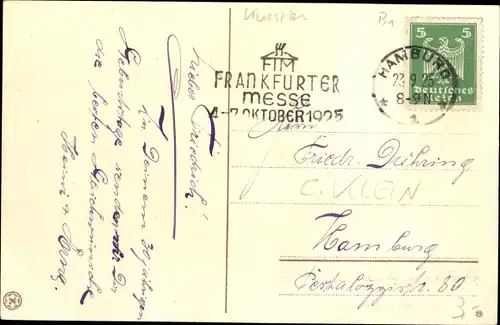 Künstler
FIM
FRANKFURTER
MESSE
4-7. OKTOBER 1925
HAMBURG
23.9.25
8-9 N
* 1 *
5 5
Deutsches
Reich
Lieber Friedrich!
Zu Deinem 30 jährigen
Geburtstage senden wir Dir
die besten Glückwünsche
Herrn
Friedr. Dühring
C. KLEIN
Hamburg
Pestalozzistr. 80
3-